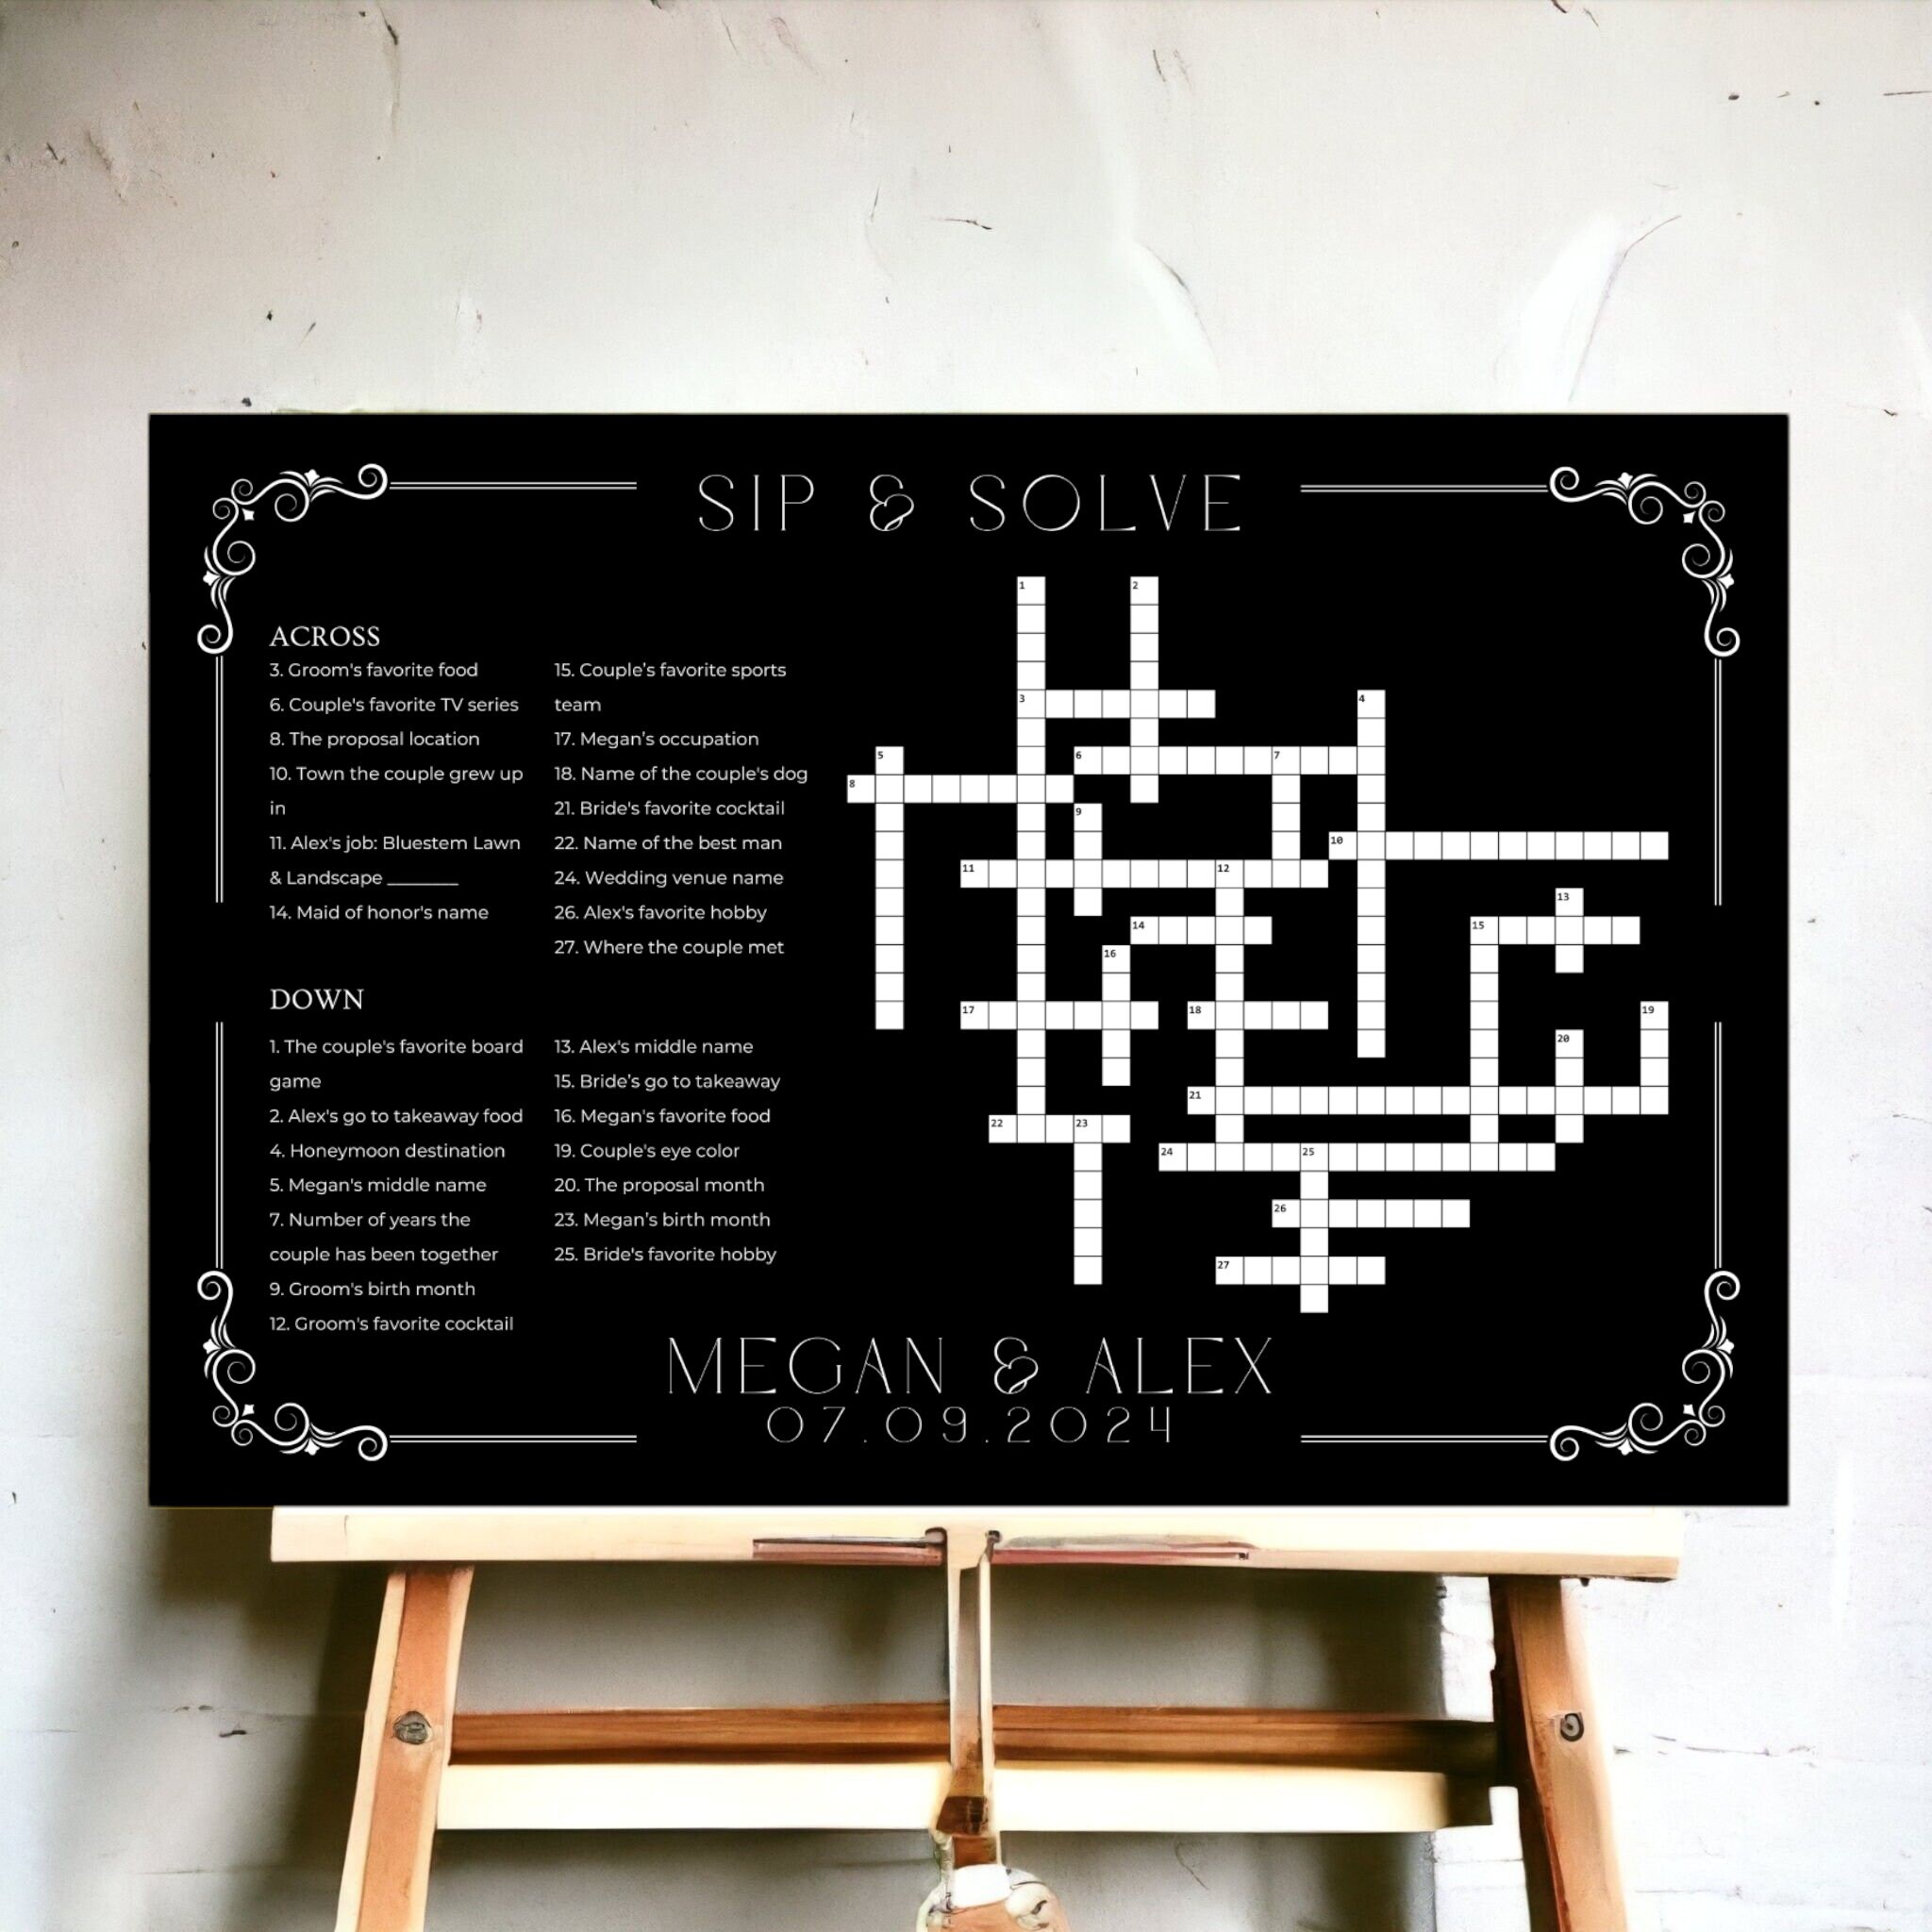 SIP & SOLVE
ACROSS
3. Groom's favorite food
6. Couple's favorite TV series
8. The proposal location
10. Town the couple grew up
in
11. Alex's job: Bluestem Lawn
& Landscape ________
14. Maid of honor's name
15. Couple’s favorite sports
team
17. Megan’s occupation
18. Name of the couple's dog
21. Bride's favorite cocktail
22. Name of the best man
24. Wedding venue name
26. Alex's favorite hobby
27. Where the couple met
DOWN
1. The couple's favorite board
game
2. Alex's go to takeaway food
4. Honeymoon destination
5. Megan's middle name
7. Number of years the
couple has been together
9. Groom's birth month
12. Groom's favorite cocktail
13. Alex's middle name
15. Bride’s go to takeaway
16. Megan's favorite food
19. Couple's eye color
20. The proposal month
23. Megan’s birth month
25. Bride's favorite hobby
1 2
3 4
5 6 7
8
9
10
11 12
13
14 15
16
17 18 19
20
21
22 23
24 25
26
27
MEGAN & ALEX
07.09.2024